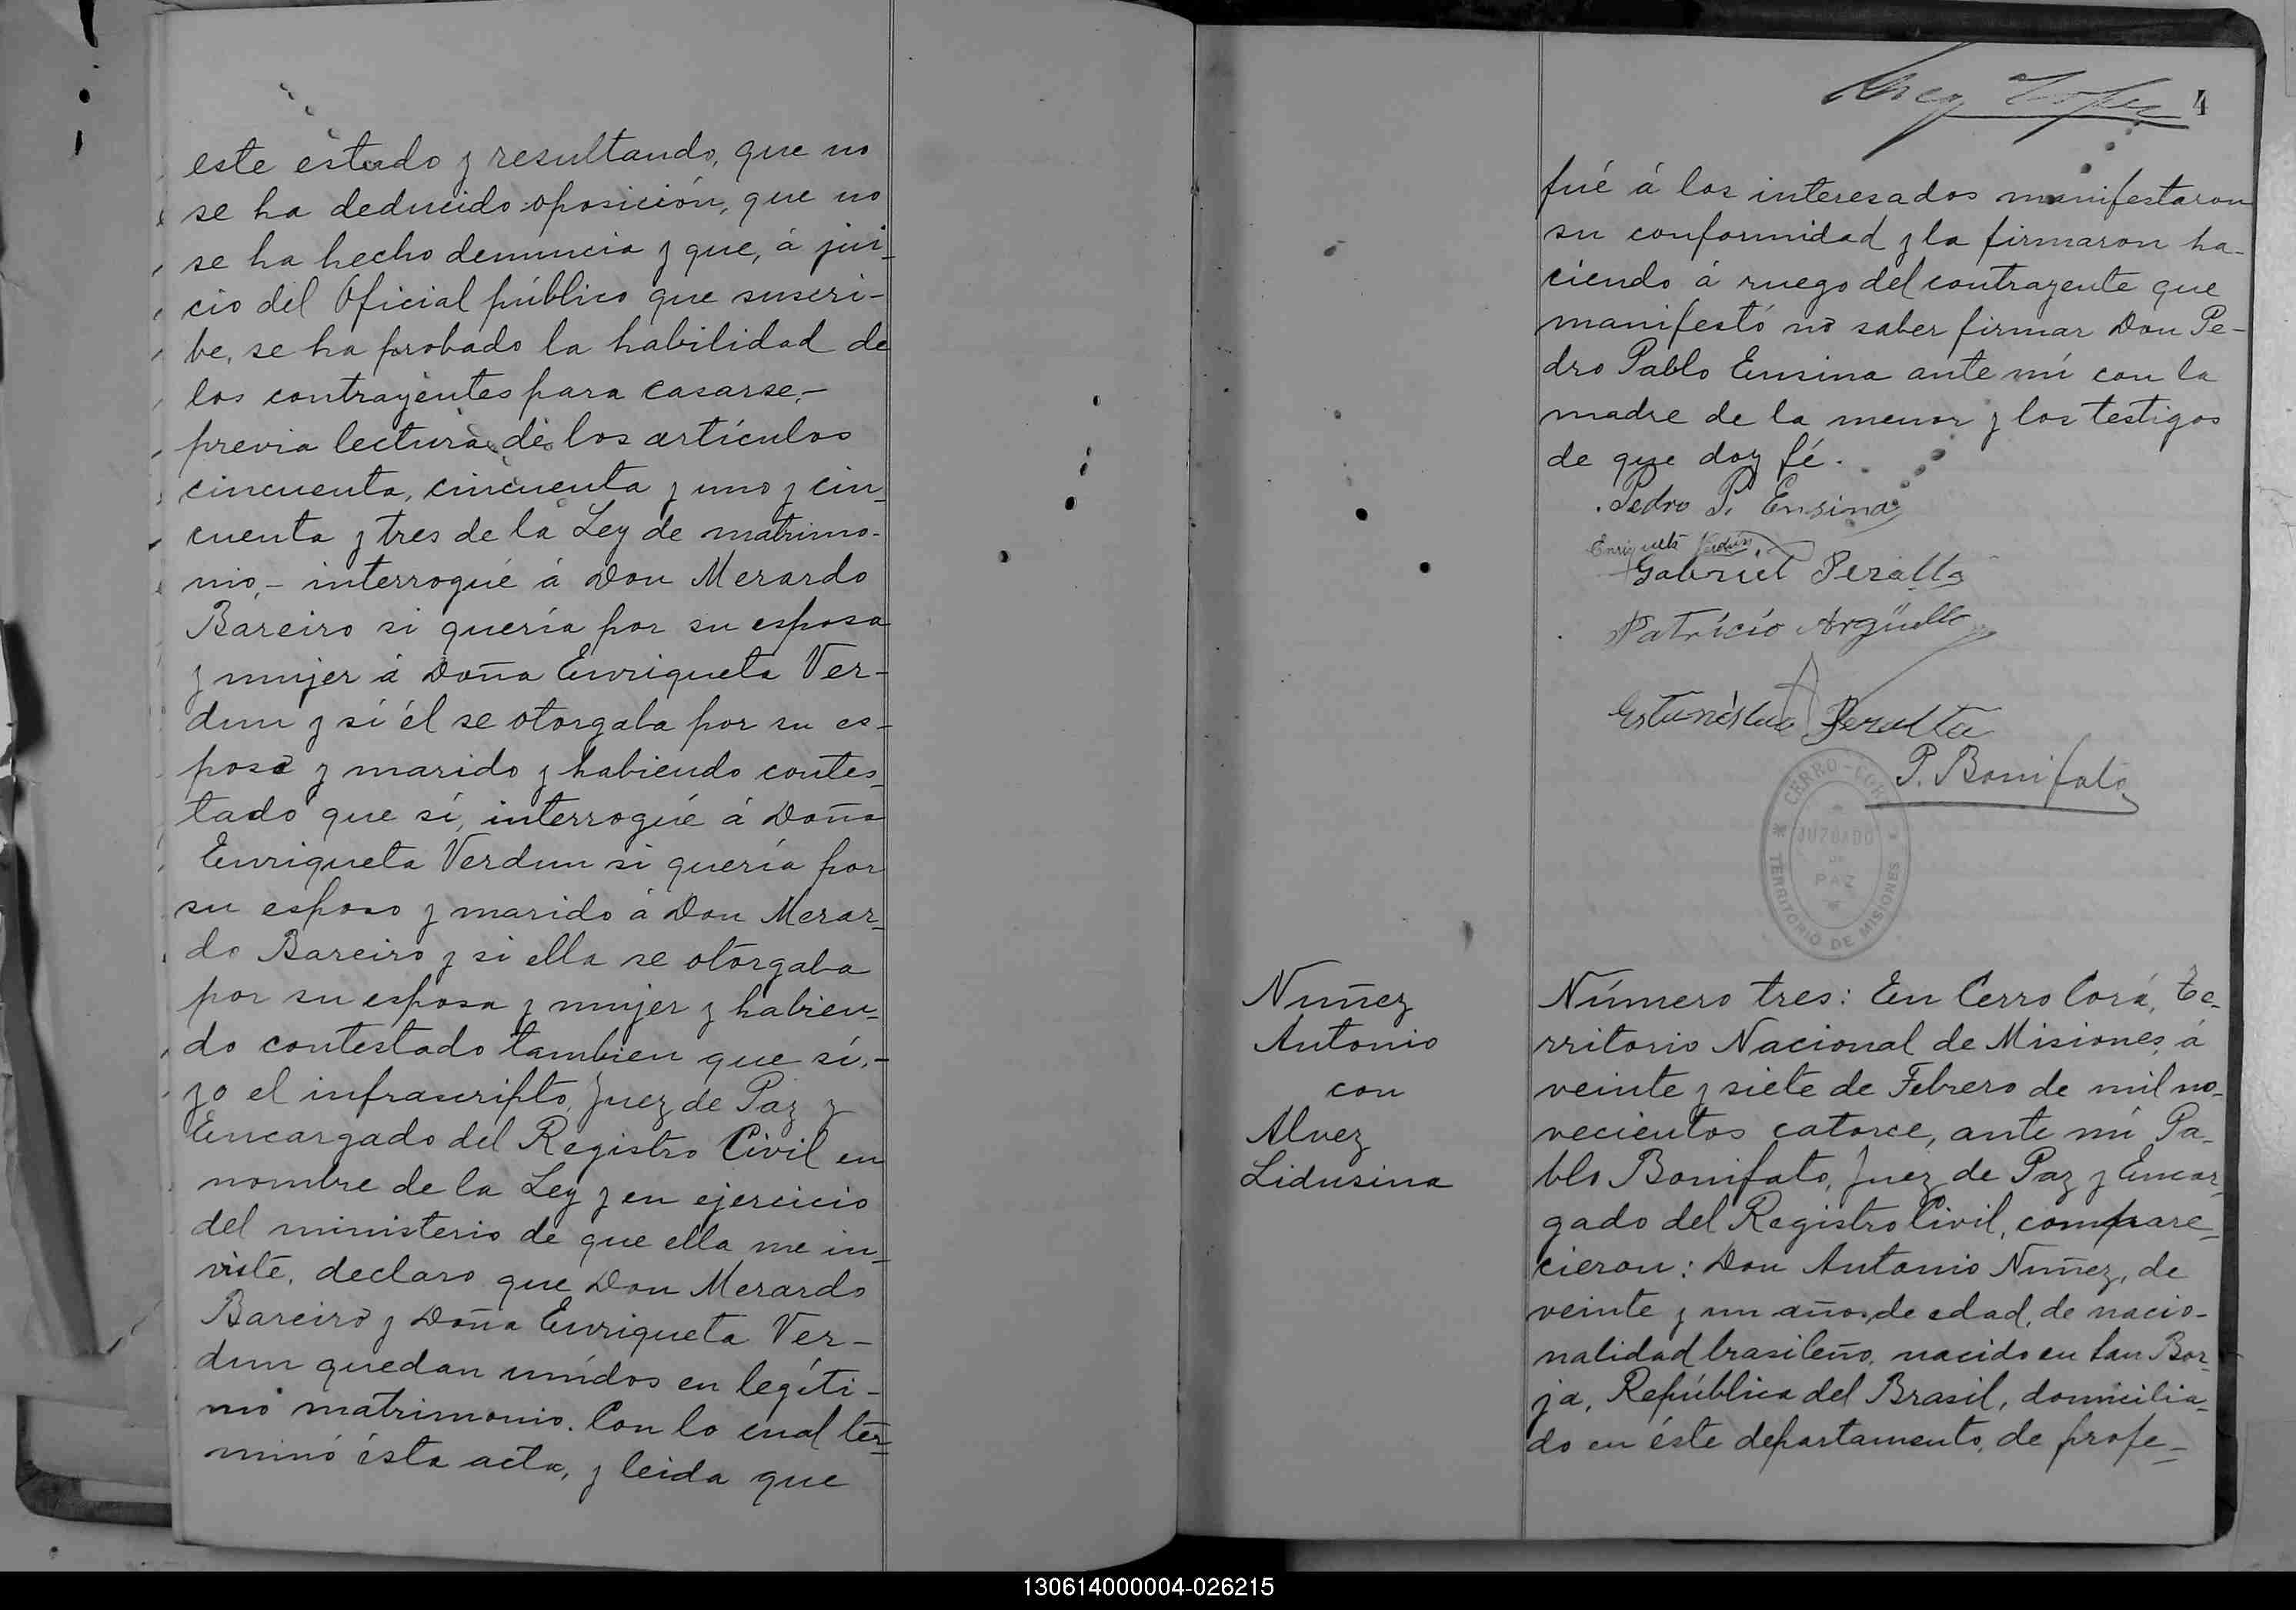 este estado y resultando, que no
se ha deducido oposición, que no
se ha hecho denuncia y que, á jui-
cio del Oficial público que suscri-
be, se ha probado la habilidad de
los contrayentes para casarse,-
previa lectura de los artículos
cincuenta, cincuenta y uno y cin-
cuenta y tres de la Ley de matrimo-
nio,- interrogué á Don Merardo
Bareiro si quería por su esposa
y mujer á Doña Enriqueta Ver-
dun y si él se otorgaba por su es-
poso y marido y habiendo contes-
tado que sí, interrogué á Doña
Enriqueta Verdun si quería por
su esposo y marido á Don Merar-
do Bareiro y si ella se otorgaba
por su esposa y mujer y habien-
do contestado tambien que sí,-
yo el infrascripto, Juez de Paz y
Encargado del Registro Civil en
nombre de la Ley y en ejercicio
del ministerio de que ella me in-
viste, declaro que Don Merardo
Bareiro y Doña Enriqueta Ver-
dun quedan unidos en legíti-
mo matrimonio. Con lo cual ter-
minó ésta acta, y leida que
4
fué á los interesados manifestaron
su conformidad y la firmaron ha-
ciendo á ruego del contrayente que
manifestó no saber firmar Don Pe-
dro Pablo Ensina ante mí con la
madre de la menor y los testigos
de que doy fé.
Pedro P. Ensina
Enriqueta Verdún
Gabriel Peralta
Patrício Argüello
Estanislao Peralta
P. Bonifato
CERRO-CORÁ
JUZGADO
DE
PAZ
TERRITORIO DE MISIONES
Nuñez
Antonio
con
Alvez
Lidusina
Número tres: En Cerro Corá, Te-
rritorio Nacional de Misiones, á
veinte y siete de Febrero de mil no-
vecientos catorce, ante mí Pa-
blo Bonifato, Juez de Paz y Encar-
gado del Registro Civil, compare-
cieron: Don Antonio Nuñez, de
veinte y un años de edad, de nacio-
nalidad brasileño, nacido en San Bor-
ja, República del Brasil, domicilia-
do en éste departamento, de profe-
130614000004-026215